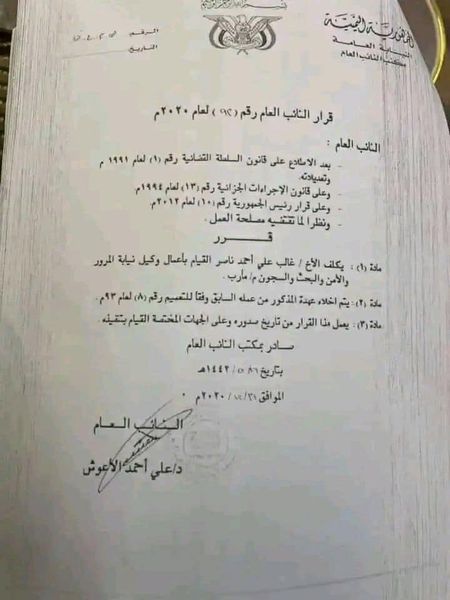 بسم الله الرحمن الرحيم
الجمهورية اليمنية
النيابة العامة
مكتب النائب العام
الرقم
التاريخ
قرار النائب العام رقم ( ) لعام ٢٠٢٠م
النائب العام :
- بعد الاطلاع على قانون السلطة القضائية رقم (١) لعام ١٩٩١ م
وتعديلاته.
- وعلى قانون الإجراءات الجزائية رقم (١٣) لعام ١٩٩٤م.
- وعلى قرار رئيس الجمهورية رقم (١٠) لعام ٢٠١٢م.
- ونظرا لما تقتضيه مصلحة العمل .
قرر
مادة (١): يكلف الأخ/ غالب علي أحمد ناصر القيام بأعمال وكيل نيابة المرور
والأمن والبحث والسجون م/ مأرب.
مادة (٢): يتم اخلاء عهدة المذكور من عمله السابق وفقا للتعميم رقم (٨) لعام ٩٣م.
مادة (٣): يعمل هذا القرار من تاريخ صدوره وعلى الجهات المختصة القيام بتنفيذه
صادر بمكتب النائب العام
بتاريخ / /١٤٤٢هـ
الموافق / /٢٠٢٠م .
النائب العام
د/علي أحمد الأعوش